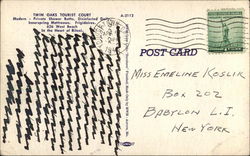 TWIN OAKS TOURIST COURT
Modern - Private Shower Baths, Disinfected Daily
Innerspring Mattresses. Frigidaires.
636 West Beach
In the Heart of Biloxi.
A-2112
POST CARD
MISS EMELINE KOSLIK
BOX 202
BABYLON L.I.
NEW YORK